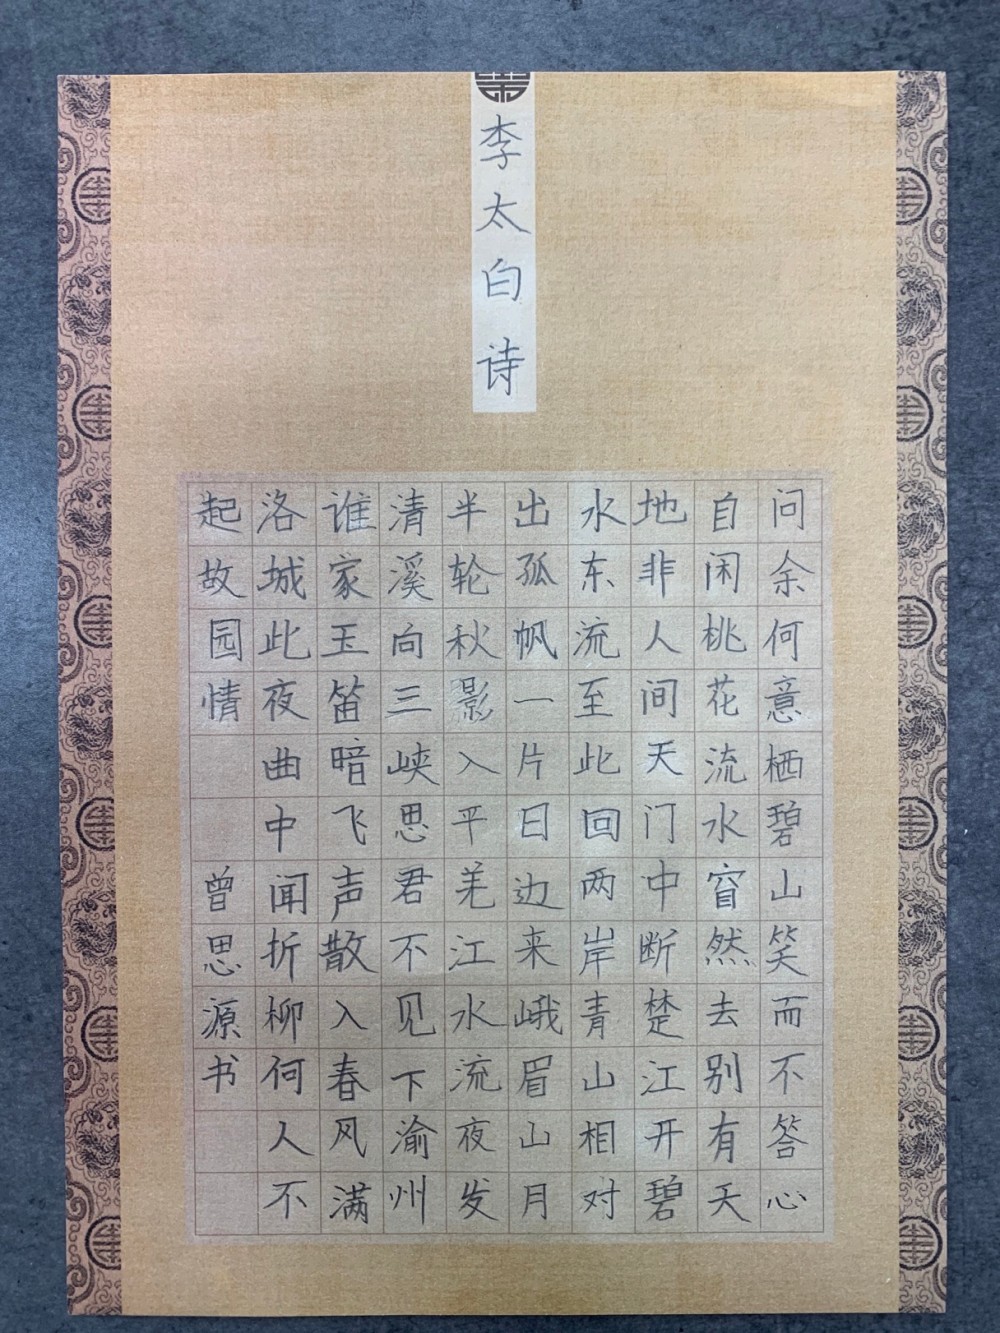 李太白诗
问余何意栖碧山笑而不答心
自闲桃花流水窅然去别有天
地非人间天门中断楚江开碧
水东流至此回两岸青山相对
出孤帆一片日边来峨眉山月
半轮秋影入平羌江水流夜发
清溪向三峡思君不见下渝州
谁家玉笛暗飞声散入春风满
洛城此夜曲中闻折柳何人不
起故园情 曾思源书